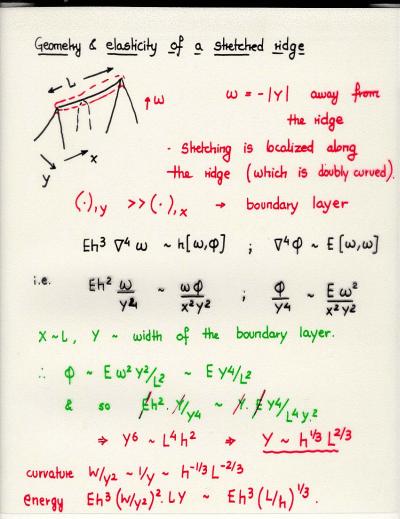 Geometry & elasticity of a stretched ridge
L
w
x
y
w = -|Y| away from
the ridge
· Stretching is localized along
the ridge (which is doubly curved).
(·),y >> (·),x → boundary layer
Eh³ ∇⁴ w ~ h[w,φ] ; ∇⁴φ ~ E[w,w]
i.e. Eh² w/y⁴ ~ wφ/x²y² ; φ/y⁴ ~ Ew²/x²y²
X ~ L, Y ~ width of the boundary layer.
∴ φ ~ E w² y²/L² ~ E y⁴/L²
& so Eh². Y/y⁴ ~ Y. E y⁴/L⁴y²
⇒ Y⁶ ~ L⁴h² ⇒ Y ~ h^1/3 L^2/3
curvature W/y² ~ 1/y ~ h^-1/3 L^-2/3
energy Eh³ (W/y²)². LY ~ Eh³ (L/h)^1/3.